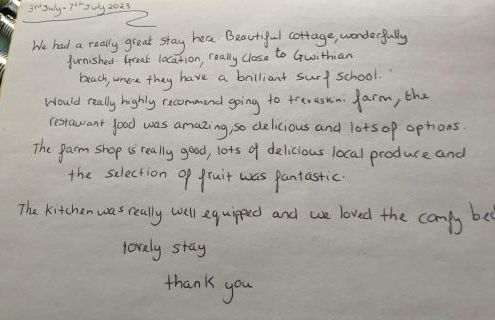 3rd July - 7th July 2023
We had a really great stay here. Beautiful cottage, wonderfully
furnished. Great location, really close to Gwithian
beach, where they have a brilliant surf school.
Would really highly recommend going to trevaskini farm, the
restaurant food was amazing, so delicious and lots of options.
The farm shop is really good, lots of delicious local produce and
the selection of fruit was fantastic.
The kitchen was really well equipped and we loved the comfy
lovely stay
thank you